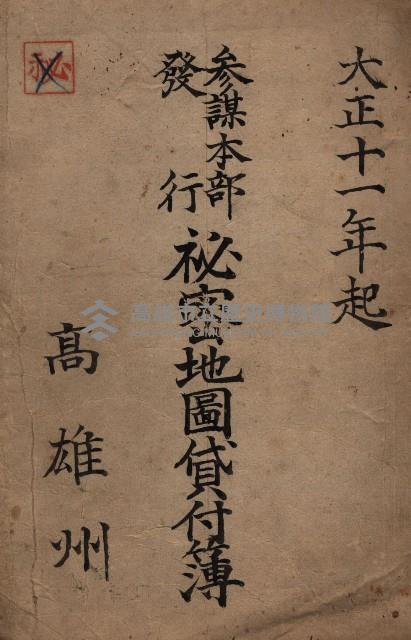 大正十一年起
參謀本部
發行
祕密地圖貸付簿
高雄州
秘
高雄市立歷史博物館